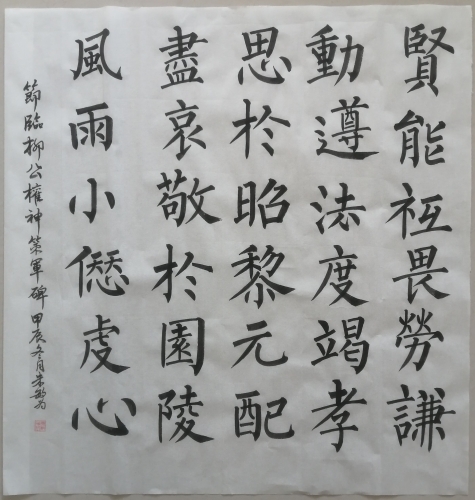 賢能祗畏勞謙
動遵法度竭孝
思於昭黎元配
盡哀敬於園陵
風雨小愆虔心
節臨柳公權神策軍碑甲辰冬月